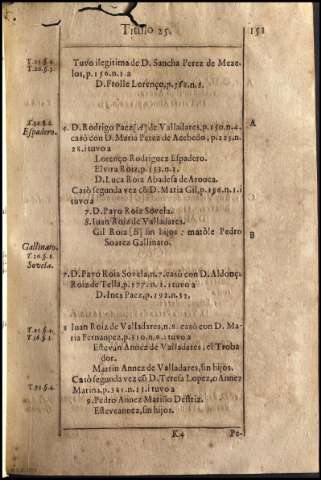 Titulo 25. 151
T.25.§.4.
T.20.§.3.
Tuvo ilegitima de D. Sancha Perez de Meze-
los, p.156.n.1.a
D. Froile Lorenço, p.
Espadero.
6. D. Rodrigo Paez [A] de Valladares, p.150.n.4.
casò con D. Maria Perez de Acebedo, p.
28. i tuvo a
Lorenço Rodriguez Espadero.
Elvira Roiz, p.153.n.1.
D. Luca Roiz Abadesa de Arouca.
Casò segunda vez cõ D. Maria Gil, p.
tuvo a
7. D. Payo Roiz Sovela.
8. Iuan Roiz de Valladares.
Gil Roiz [B] sin hijos: matòle Pedro
Soarez Gallinato.
A
B
Gallinato.
Sovela.
7. D. Payo Roiz Sovela, n.7. casò con D. Aldonça
Roiz de Tella, p.177.n.1. i tuvo a
D. Ines Paez, p.192.n.52.
8 Iuan Roiz de Valladares, n.8. casò con D. Ma-
ria Fernanpez, p.510.n.6. i tuvo a
Estevan Annez de Valladares, el Troba
dor.
Martin Annez de Valladares, sin hijos.
Casò segunda vez cõ D. Teresa Lopez, o Annez
Marina, p.341.n.15. i tuvo a
9. Pedro Annez Mariño Destriz.
Esteveannez, sin hijos.
K4 Pe-